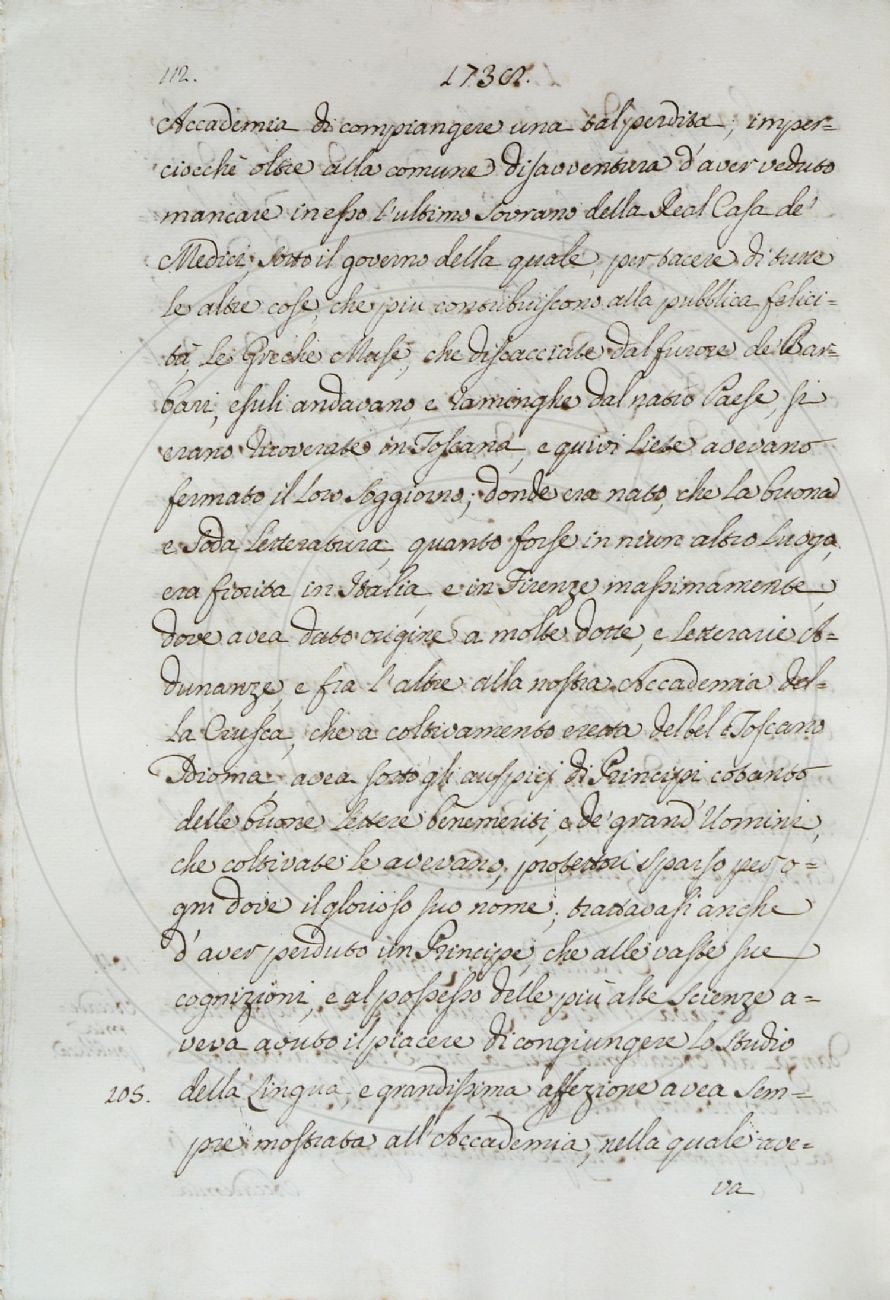 112.
173
Accademia di compiangere una tal perdita; imper=
ciocchè oltre alla comune disavventura d'aver veduto
mancare in esso l'ultimo Sovrano della Real Casa de'
Medici, sotto il governo della quale, per tacere di tutte
le altre cose, che più contribuiscono alla pubblica felici=
tà, le Greche Muse, che discacciate dal furore de Bar=
bari, esuli andavano, e raminghe dal natio Paese, si
erano ricoverate in Toscana, e quivi liete avevano
fermato il loro soggiorno; donde era nato, che la buona
e soda letteratura, quanto forse in niun altro luogo,
era fiorita in Italia, e in Firenze massimamente,
dove avea dato origine a molte dotte, e letterarie A=
dunanze, e fra l'altre alla nostra Accademia del=
la Crusca, che a coltivamento eretta del bel Toscano
Idioma, avea sotto gli auspicj di Principi cotanto
delle buone lettere benemeriti, e de' grand' Uomini,
che coltivate le avevano, protettori sparso per o=
gni dove il glorioso suo nome; trattavasi anche
d'aver perduto un Principe, che alle vaste sue
cognizioni, e al possesso delle più alte scienze a=
veva avuto il piacere di congiungere lo studio
105. della Lingua, e grandissima affezione avea sem=
pre mostrata all'Accademia, nella quale ave=
va